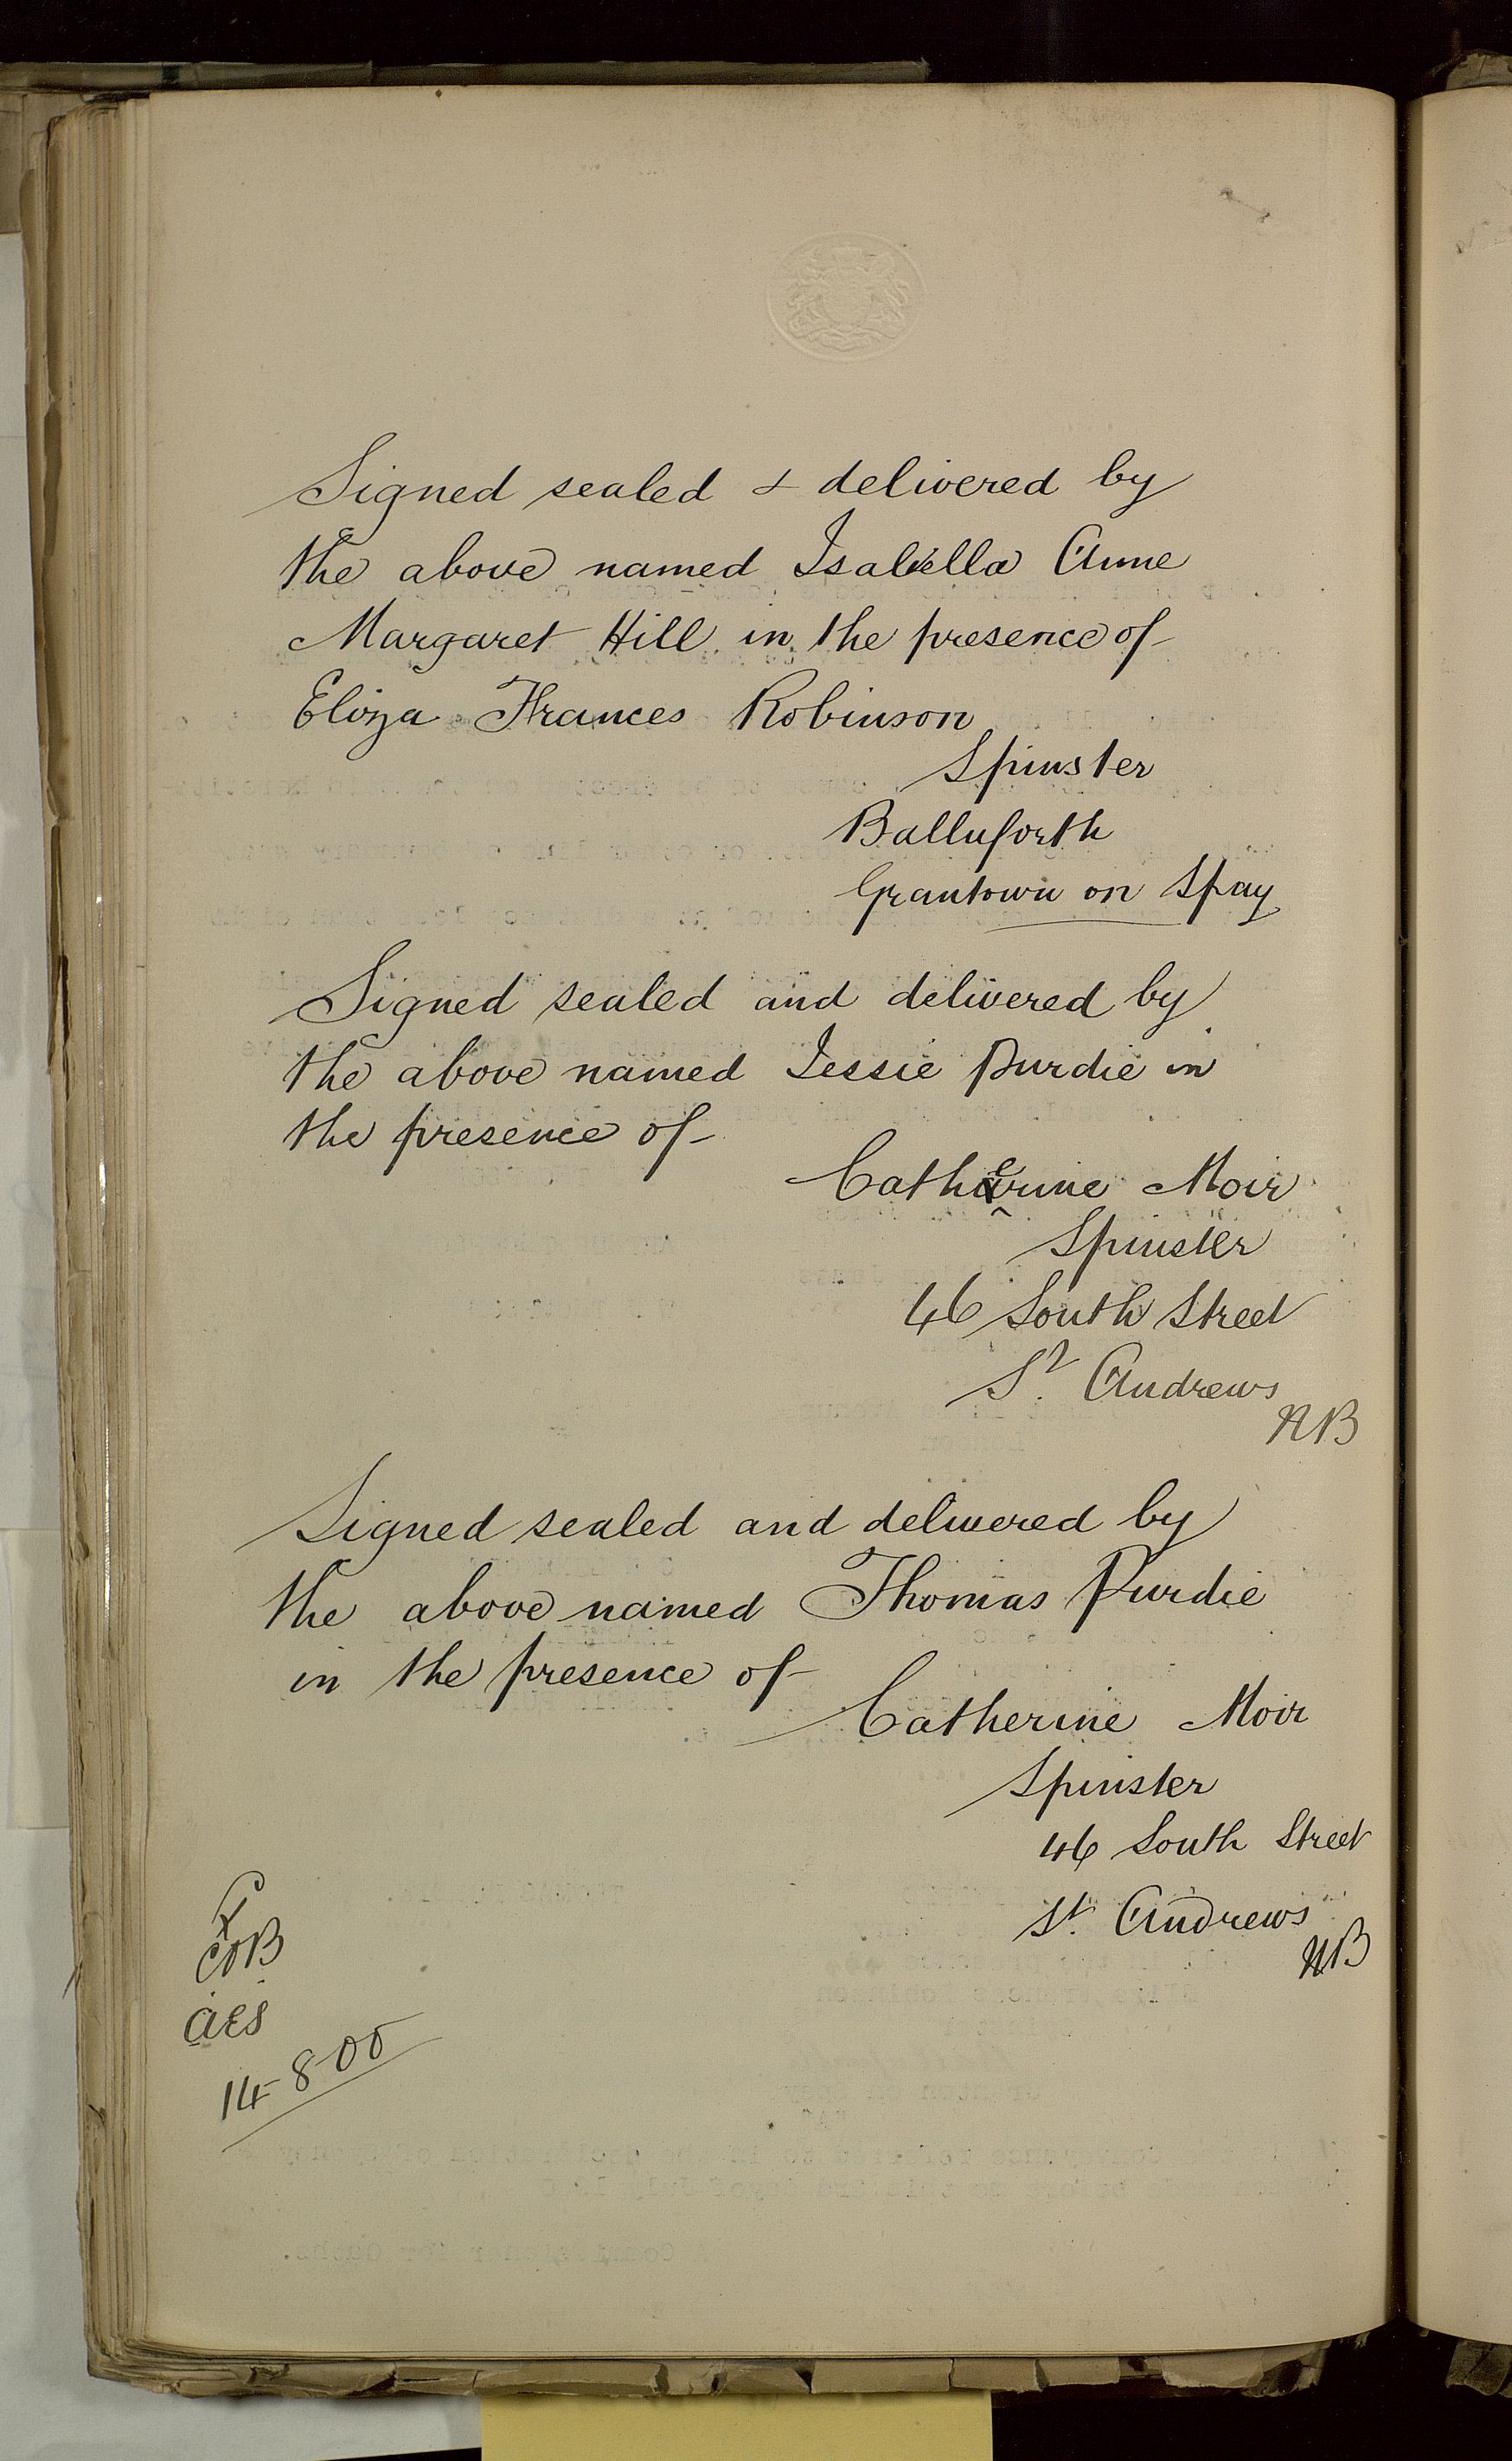 Signed sealed & delivered by
the above named Isabella Anne
Margaret Hill in the presence of
Eliza Frances Robinson
Spinster
Ballnforth
Grantown on Spay
Signed sealed and delivered by
the above named Jessie Purdie in
the presence of
Catherine Moir
Spinster
46 South Street
St. Andrews
NB
Signed sealed and delivered by
the above named Thomas Purdie
in the presence of
Catherine Moir
Spinster
46 South Street
St. Andrews
NB
AES
14-8-00